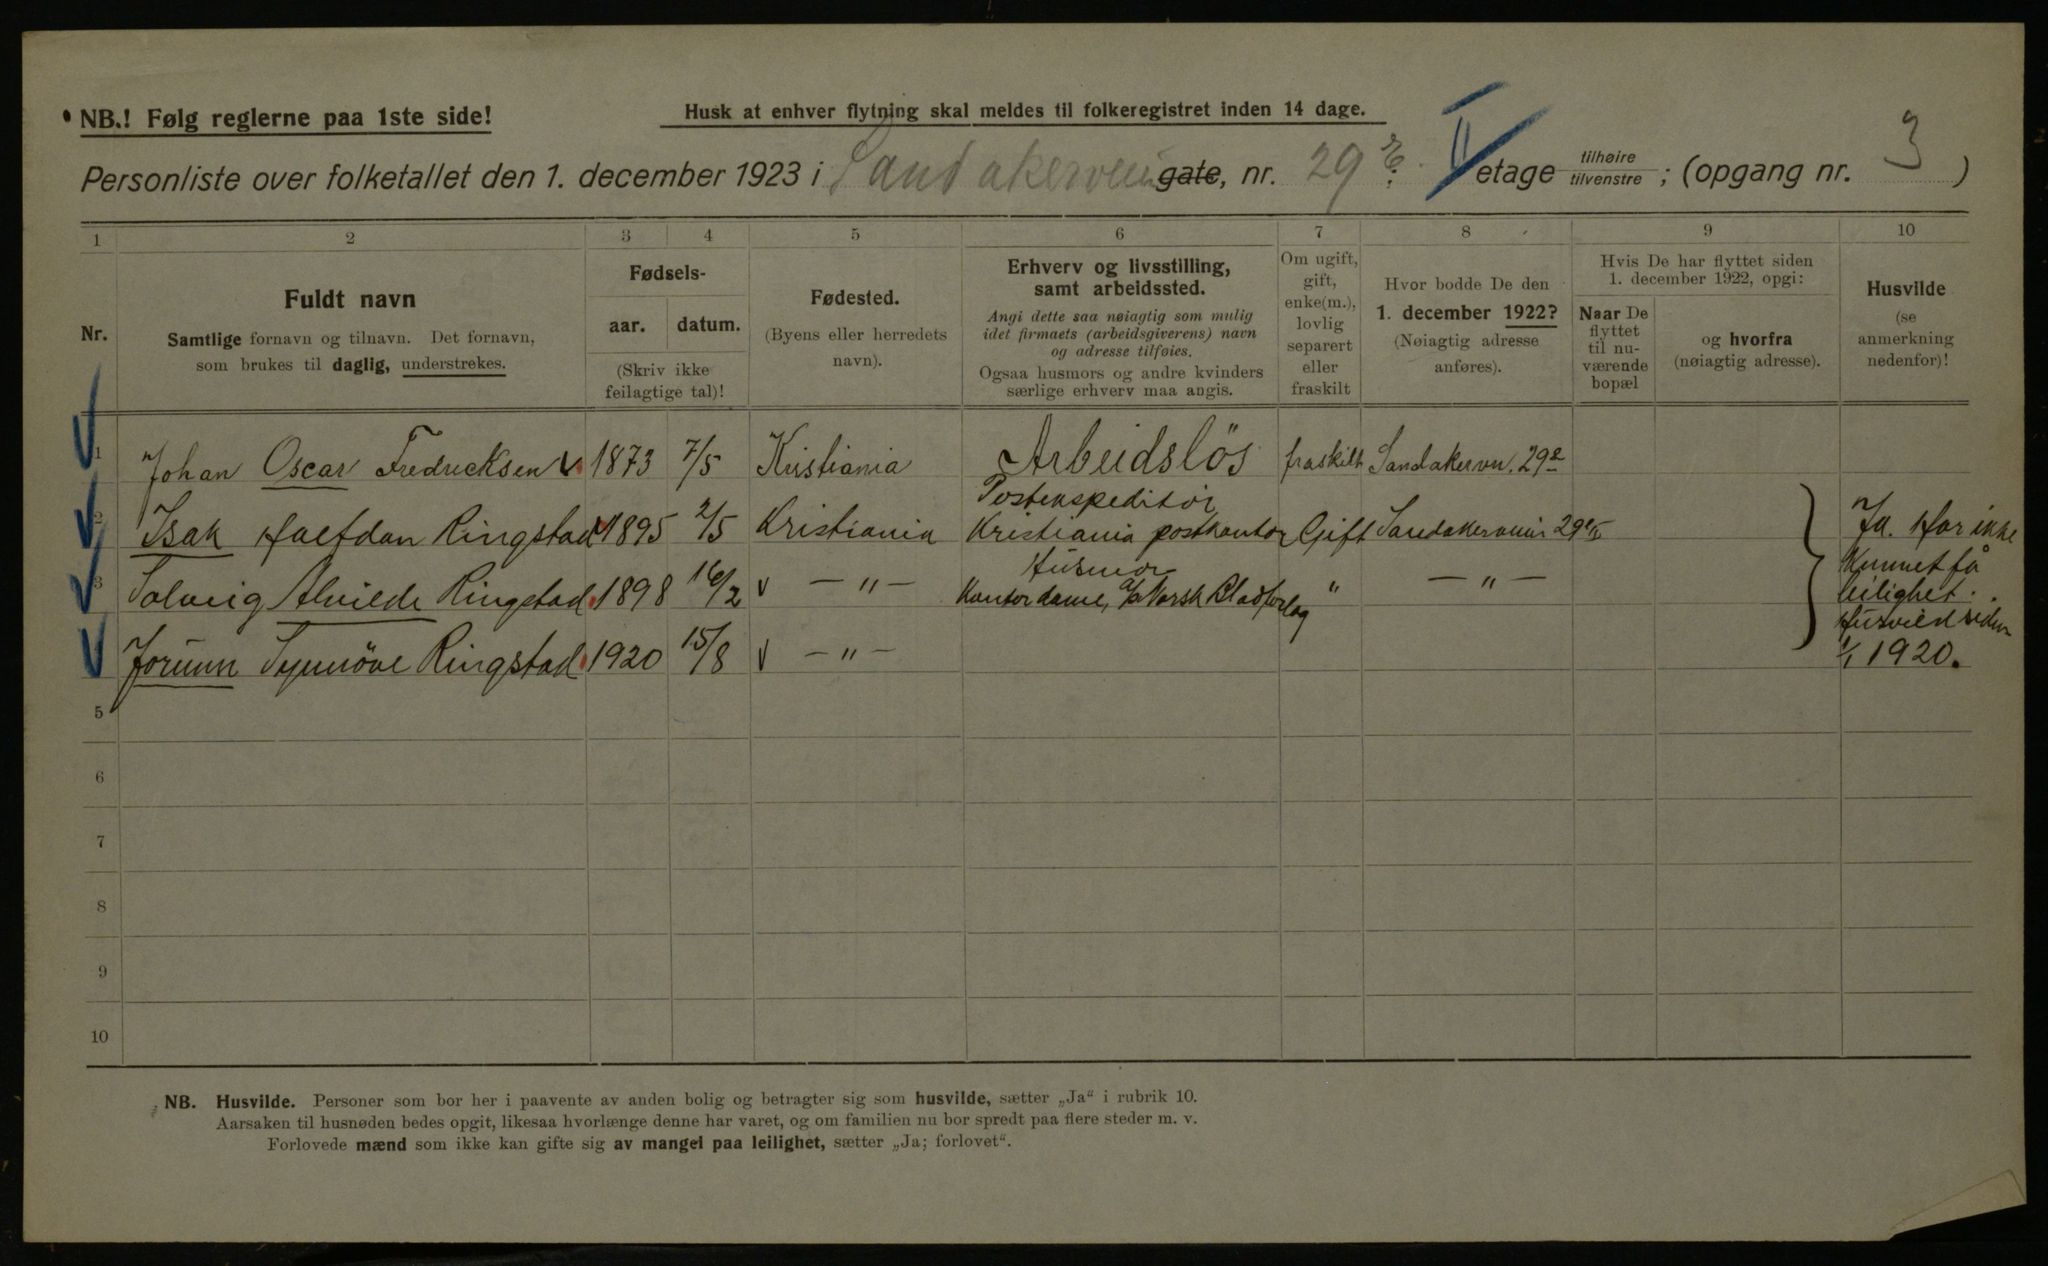 NB.! Følg reglerne paa 1ste side!
Husk at enhver flytning skal meldes til folkeregistret inden 14 dage.
Personliste over folketallet den 1. december 1923 i Sandakerveien gate, nr. 29 E. II etage tilhøire tilvenstre ; (opgang nr. 3 )
1 2 3 4 5 6 7 8 9 10
Nr.
Fuldt navn
Samtlige fornavn og tilnavn. Det fornavn,
som brukes til daglig, understrekes.
Fødsels-
aar. datum.
(Skriv ikke
feilagtige tal)!
Fødested.
(Byens eller herredets
navn).
Erhverv og livsstilling,
samt arbeidssted.
Angi dette saa nøiagtig som mulig
idet firmaets (arbeidsgiverens) navn
og adresse tilføies.
Ogsaa husmors og andre kvinders
særlige erhverv maa angis.
Om ugift,
gift,
enke(m.),
lovlig
separert
eller
fraskilt
Hvor bodde De den
1. december 1922?
(Nøiagtig adresse
anføres).
Hvis De har flyttet siden
1. december 1922, opgi:
Naar De
flyttet
til nu-
værende
bopæl
og hvorfra
(nøiagtig adresse).
Husvilde
(se
anmerkning
nedenfor)!
1 Johan Oscar Fredricksen 1873 7/5 Kristiania Arbeidslös fraskilt Sandakervn. 29e
2 Isak Halfdan Ringstad 1895 2/5 Kristiania Postekspeditör
Kristiania postkontor Gift Sandakerveien 29e/II
3 Solveig Alvilde Ringstad 1898 16/2 — " — Husmor
Kontordame, A/S Norsk Bladforlag " — " —
Jorunn Synnöve Ringstad 1920 15/8 — " —
Ja. Har ikke
kunnet få
leilighet.
Husvild siden
1/1 1920.
5
6
7
8
9
10
NB. Husvilde. Personer som bor her i paavente av anden bolig og betragter sig som husvilde, sætter „Ja" i rubrik 10.
Aarsaken til husnøden bedes opgit, likesaa hvorlænge denne har varet, og om familien nu bor spredt paa flere steder m. v.
Forlovede mænd som ikke kan gifte sig av mangel paa leilighet, sætter „Ja; forlovet".